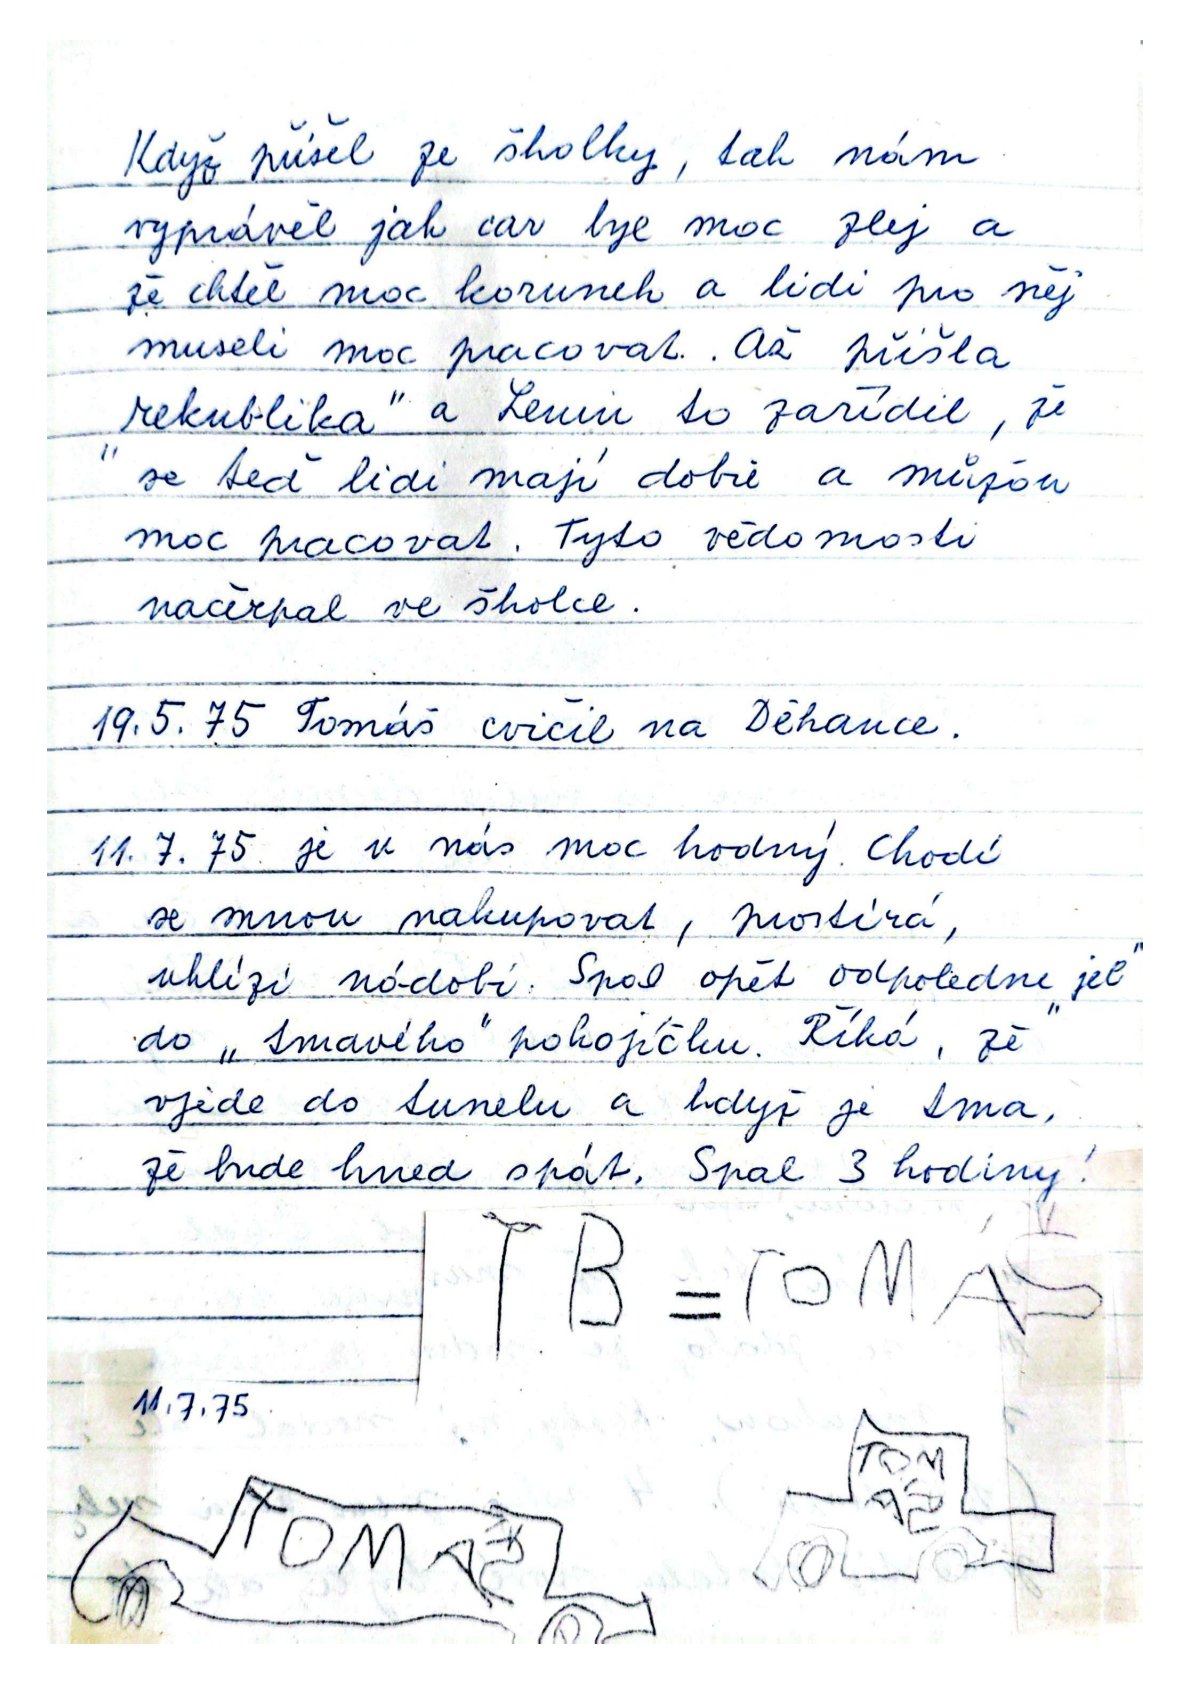 Když přišel ze školky, tak nám
vyprávěl jak car byl moc zlej a
že chtěl moc korunek a lidi pro něj
museli moc pracovat. Až přišla
"rekublika" a Lenin to zařídil, že
se teď lidi mají dobře a můžou
moc pracovat. Tyto vědomosti
načerpal ve školce.
19.5.75 Tomáš cvičil na Děkance.
11.7.75 je u nás moc hodný. Chodí
se mnou nakupovat, prostírá,
uklízí nádobí. Spal opět odpoledne „jel"
do „tmavého" pokojíčku. Říká, že
vjede do tunelu a když je tma,
že bude hned spát. Spal 3 hodiny!
TB = TOMÁŠ
11.7.75
TOM
ÁŠ
TOMÁŠ